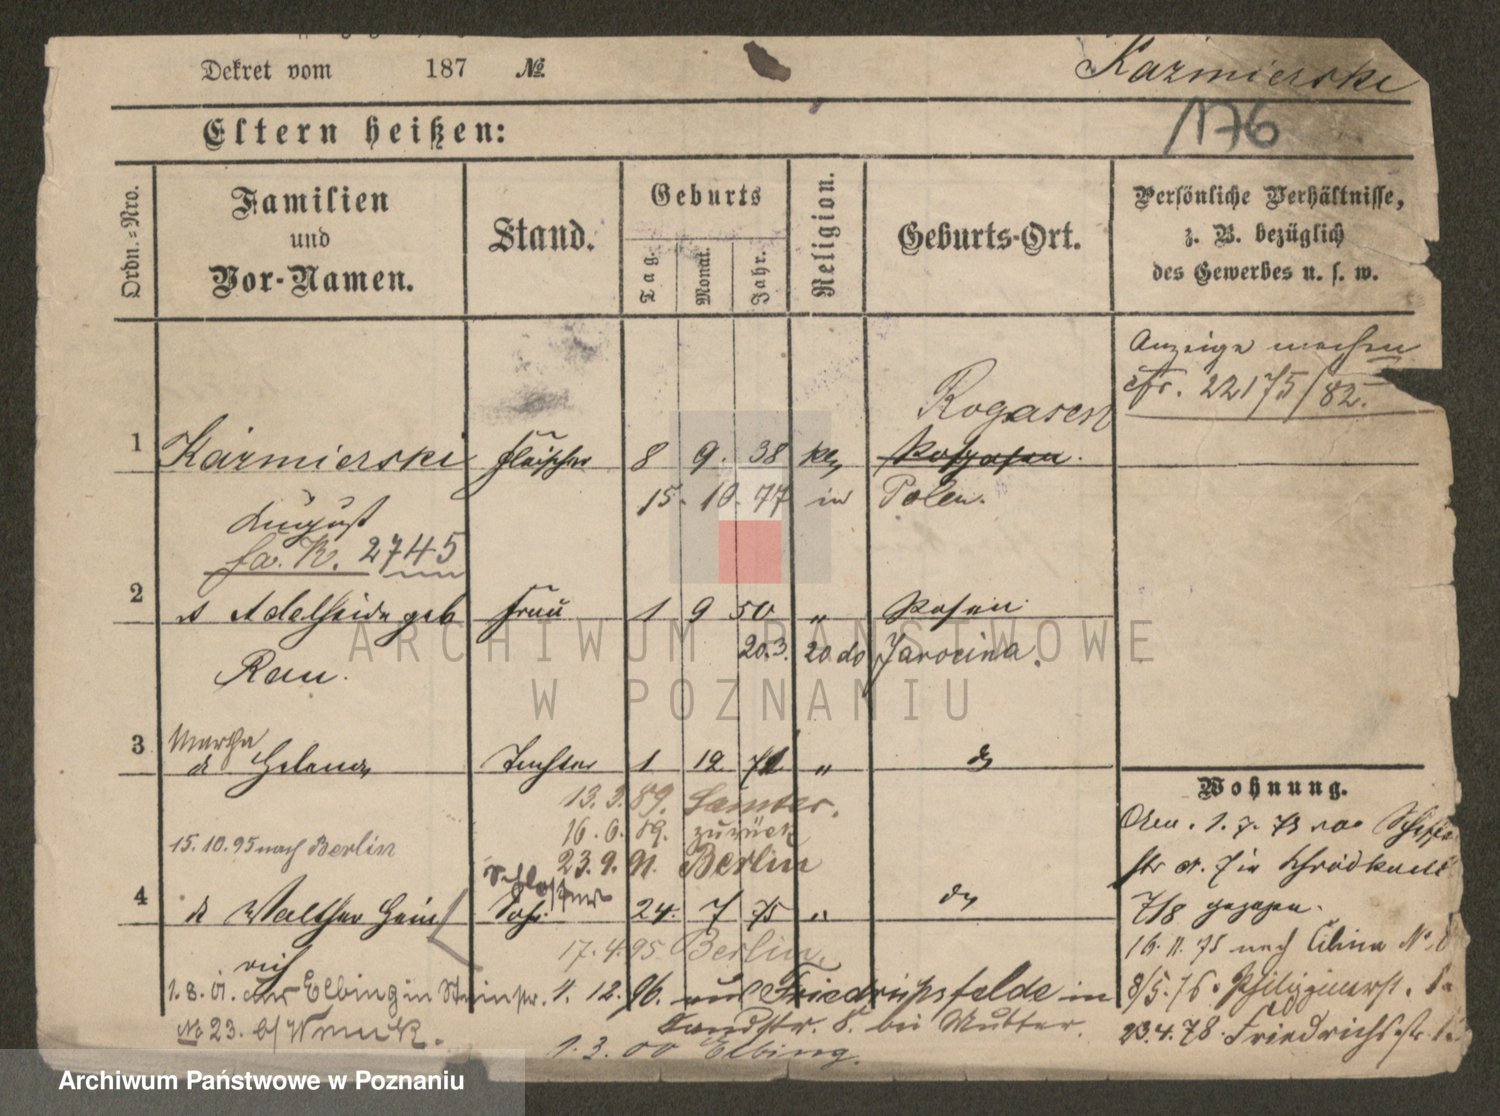 Dekret vom 187 №
Kazmierski
176
Eltern heißen:
Ordn.-Nro.
Familien
und
Vor-Namen.
Stand.
Geburts
Tag.
Monat.
Jahr.
Religion.
Geburts-Ort.
Persönliche Verhältnisse,
z. B. bezüglich
des Gewerbes u. s. w.
Anzeige machen
cfr. 22175/82.
Rogasen
1 Kazmierski Fleischer 8 9. 38 Posen.
15. 10. 77 in Polen.
August
fa. K. 2745
2 Adelheide geb Frau 1 9 50 „ Posen
20.3. do Jarocina.
Rau.
3 Martha
Helena Tochter 1 12 71 „ do
Wohnung.
13. 3. 89. Samter.
16. 6. 89. zurück
15.10.95 nach Berlin
23. 9. 91. Berlin
Schlosser
4 do Walther Hein Sohn 24. 7 75 „ do
rich
17. 4. 95 Berlin.
1. 7. 73
7/8 gezogen.
16. 11. 75 nach
8/5. 76.
23.4.78. Friedrichsstr.
1. 8. 01. aus Elbing in Steinstr. 4. 12. 96. aus Friedrichsfelde in
No 23. b/
Landstr. 8. bei Mutter.
1. 3. 00 Elbing.
ARCHIWUM PAŃSTWOWE
W POZNANIU
Archiwum Państwowe w Poznaniu